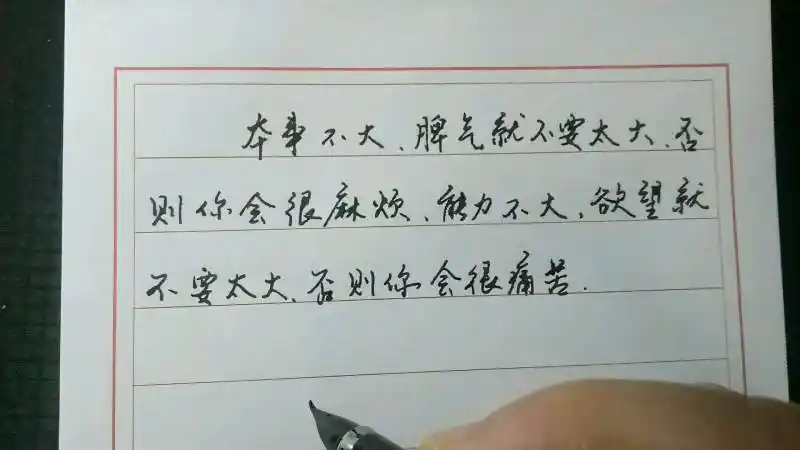 本事不大、脾气就不要太大、否
则你会很麻烦、能力不大、欲望就
不要太大、否则你会很痛苦.